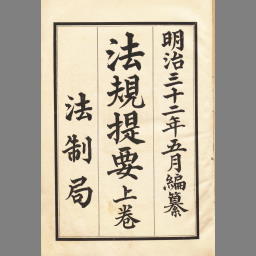 明治三十二年五月編纂
法規提要上卷
法制局